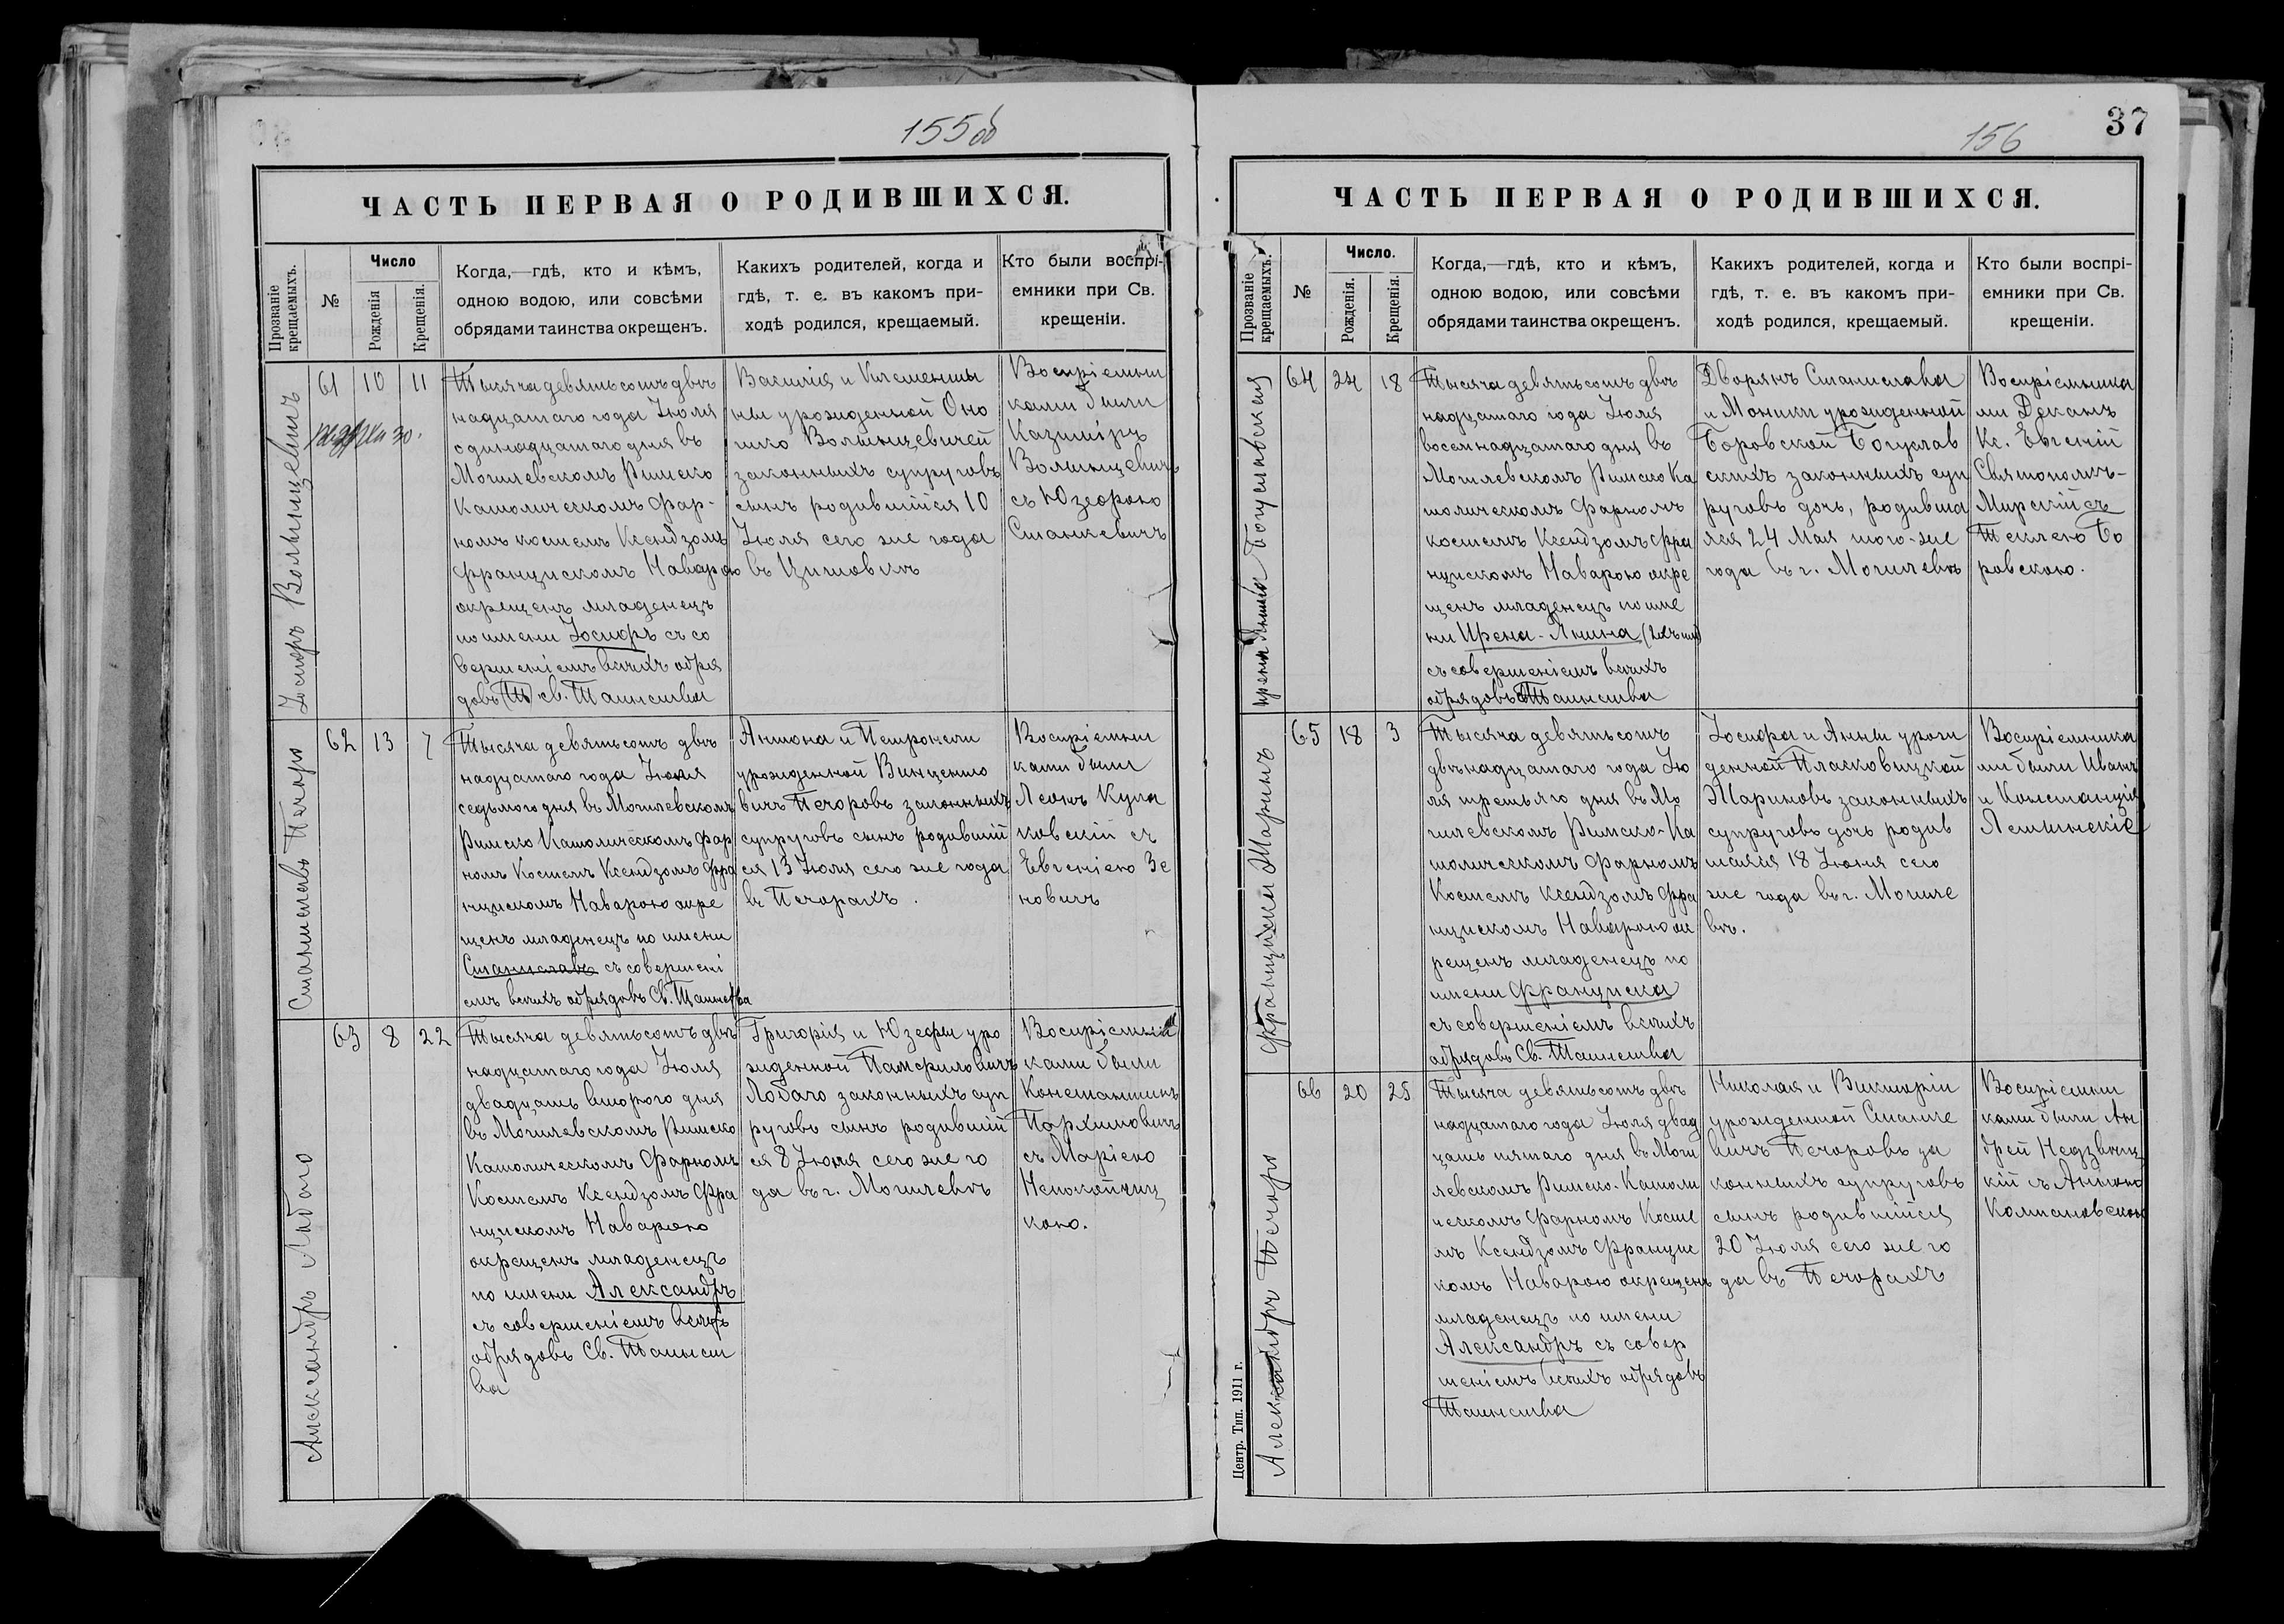 155об
ЧАСТЬ ПЕРВАЯ О РОДИВШИХСЯ.
Прозваніе крещаемыхъ.
№
Число
Рожденія
Крещенія.
Когда,—гдѣ, кто и кѣмъ,
одною водою, или совсѣми
обрядами таинства окрещенъ.
Какихъ родителей, когда и
гдѣ, т. е. въ какомъ при-
ходѣ родился, крещаемый.
Кто были воспрі-
емники при Св.
крещеніи.
Іосифъ Волынцевичъ
61
10
11
Тысяча девятьсотъ двѣ
надцатаго года Іюля
одинадцатаго дня въ
Могилевскомъ Римско
Католическомъ Фар-
номъ костелѣ Ксендзомъ
Францискомъ Наварою
окрещенъ младенецъ
по имени Іосифъ съ со
вершеніемъ всѣхъ обря
довъ св. Таинства
Василія и Клементи
ны урожденной Оно
шко Волынцевичей
законныхъ супруговъ
сынъ родившійся 10
Іюля сего же года
въ
Воспріемни
ками были
Казиміръ
Волынцевичъ
съ Юзефою
Станкевичъ
Станиславъ Печоро
62
13
7
Тысяча девятьсотъ двѣ
надцатаго года Іюля
седьмого дня въ Могилевскомъ
Римско Католическомъ Фар
номъ Костелѣ Ксендзомъ Фра
нцискомъ Наварою окре
щенъ младенецъ по имени
Станиславъ съ совершені
емъ всѣхъ обрядовъ Св. Таинства
Антона и Петронели
урожденной Винценто
вичъ Печоровъ законныхъ
супруговъ сынъ родивший
ся 13 Іюня сего же года
въ Печорахъ.
Воспріемни
ками были
Леонъ Кула
ковскій съ
Евгеніею Зе
новичъ
Александръ Лобаго
63
8
22
Тысяча девятьсотъ двѣ
надцатаго года Іюля
двадцать второго дня
въ Могилевскомъ Римско
Католическомъ Фарномъ
Костелѣ Ксендзомъ Фра
нцискомъ Наварою
окрещенъ младенецъ
по имени Александръ
съ совершеніемъ всѣхъ
обрядовъ Св. Таинст
ва
Григорія и Юзефы уро
жденной Панфиловичъ
Лобаго законныхъ суп
руговъ сынъ родивший
ся 8 Іюня сего же го
да въ г. Могилевѣ
Воспріемни
ками были
Константинъ
Пархимовичъ
съ Маріею
Непокойчиц
кою.
156
37
ЧАСТЬ ПЕРВАЯ О РОДИВШИХСЯ.
Прозваніе крещаемыхъ.
№
Число.
Рожденія.
Крещенія.
Когда,—гдѣ, кто и кѣмъ,
одною водою, или совсѣми
обрядами таинства окрещенъ.
Какихъ родителей, когда и
гдѣ, т. е. въ какомъ при-
ходѣ родился, крещаемый.
Кто были воспрі-
емники при Св.
крещеніи.
Ирена Янина Богуславская
64
24
18
Тысяча девятьсотъ двѣ
надцатаго года Іюля
восемнадцатаго дня въ
Могилевскомъ Римско Ка
толическомъ Фарномъ
костелѣ Ксендзомъ Фра
нцискомъ Наварою окре
щенъ младенецъ по име
ни Ирена-Янина
съ совершеніемъ всѣхъ
обрядовъ Таинства
Дворянъ Станислава
и Моники урожденной
Боровской Богуслав
скихъ законныхъ суп
руговъ дочь, родивша
яся 24 Мая того-же
года въ г. Могилевѣ
Воспріемника
ми Деканъ
Кс. Евгеній
Святополкъ-
Мирскій съ
Теклею Бо
ровскою.
Франциска Маринъ
65
18
3
Тысяча девятьсотъ
двѣнадцатаго года Ію
ля третьяго дня въ Мо
гилевскомъ Римско-Ка
толическомъ Фарномъ
Костелѣ Ксендзомъ Фра
нцискомъ Наварою ок
рещенъ младенецъ по
имени Франциска
съ совершеніемъ всѣхъ
обрядовъ Св. Таинства
Іосифа и Анны урож
денной Пласковицкой
Мариновъ законныхъ
супруговъ дочь родив
шаяся 18 Іюня сего
же года въ г. Могиле
вѣ.
Воспріемника
ми были Иванъ
и Констанція
Лещинскіе
Александръ Печоро
66
20
25
Тысяча девятьсотъ двѣ
надцатаго года Іюля двад
цать пятаго дня въ Моги
левскомъ Римско-Католи
ческомъ Фарномъ Косте
лѣ Ксендзомъ Францис
комъ Наварою окрещенъ
младенецъ по имени
Александръ съ совер
шеніемъ всѣхъ обрядовъ
Таинства
Николая и Викторіи
урожденной Станке
вичъ Печоровъ за
конныхъ супруговъ
сынъ родившійся
20 Іюля сего же го
да въ Печорахъ
Воспріемни
ками были Ан
дрей Недзвѣц
кій съ Антоно
Колпаковскою
Центр. Тип. 1911 г.